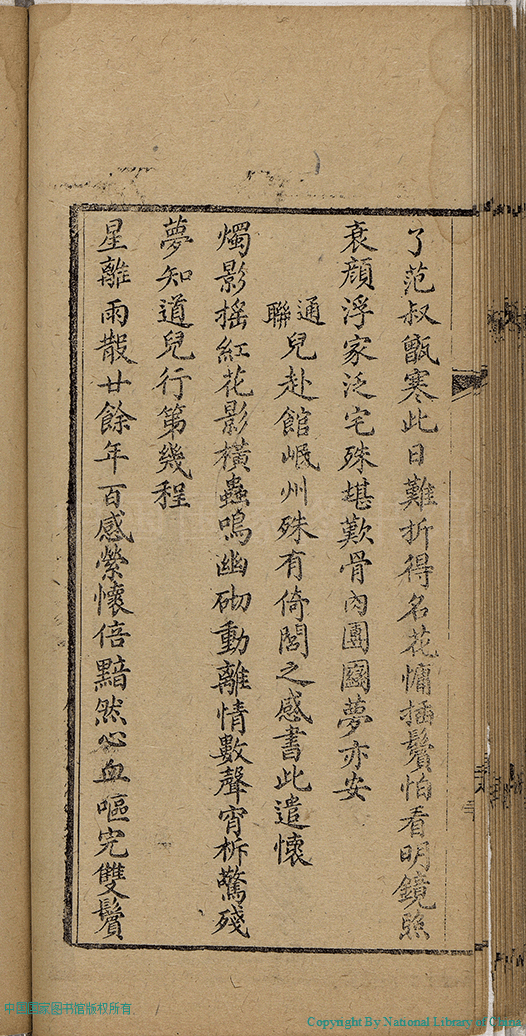 了范叔甑寒此日難折得名花慵插鬢怕看明鏡照
衰顔浮家泛宅殊堪歎骨肉團圞夢亦安
通聯兒赴館岷州殊有倚閭之感書此遣懷
燭影搖紅花影橫蟲鳴幽砌動離情數聲宵柝驚殘
夢知道兒行第幾程
星離雨散廿餘年百感縈懷倍黯然心血嘔完雙鬢
中国国家图书馆版权所有
Copyright By National Library of China